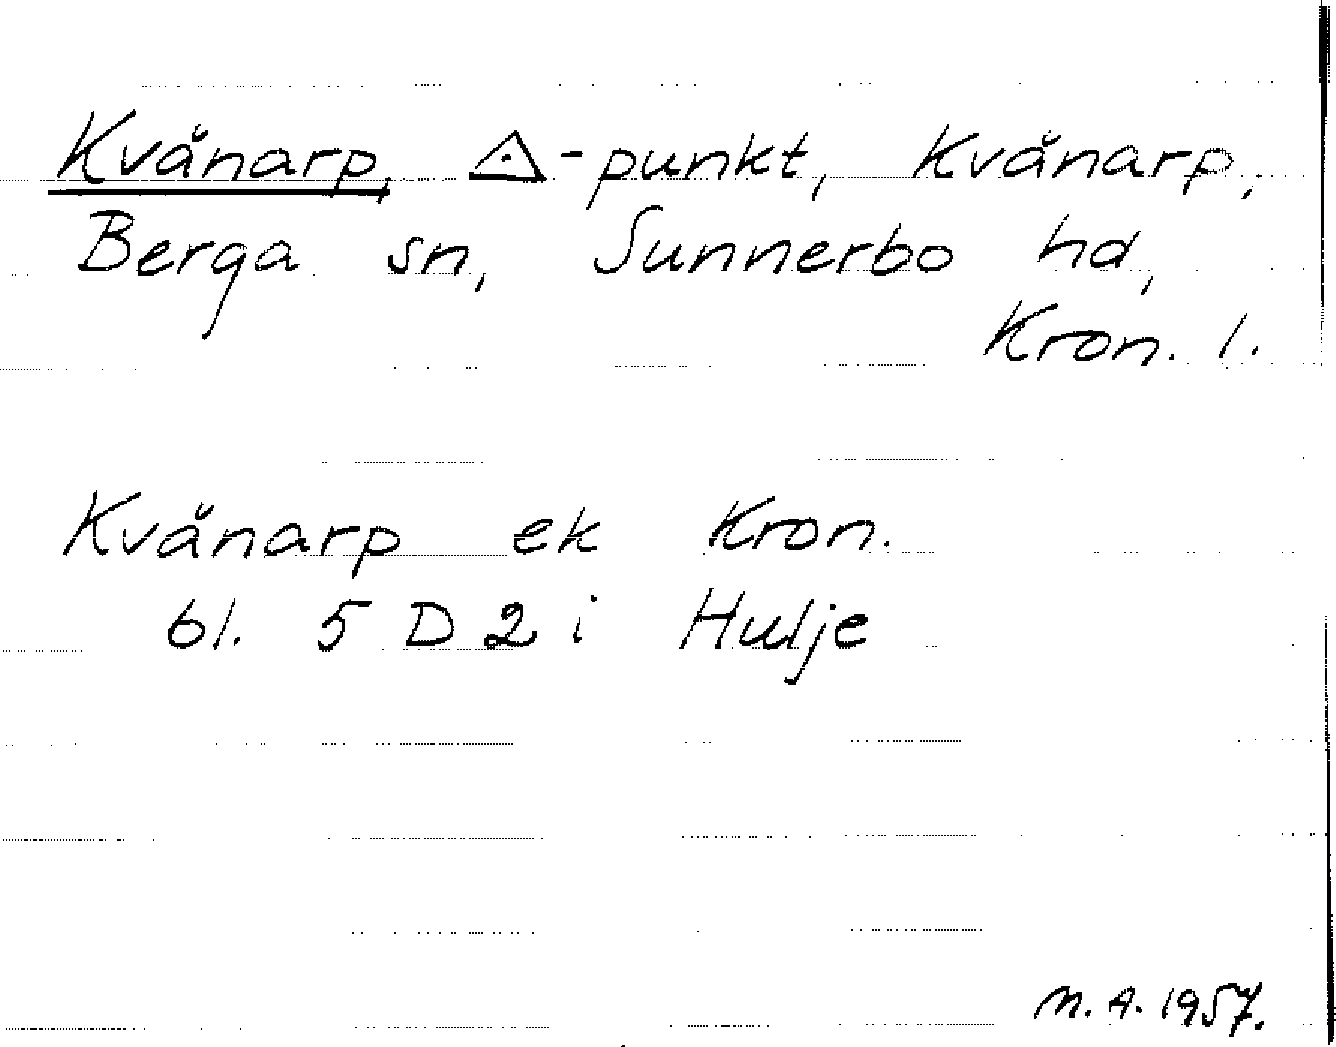 Kvånarp, △-punkt, Kvånarp,
Berga sn, Sunnerbo hd,
Kron. l.
Kvånarp ek Kron.
bl. 5 D 2 i Hulje
M. A. 1957.